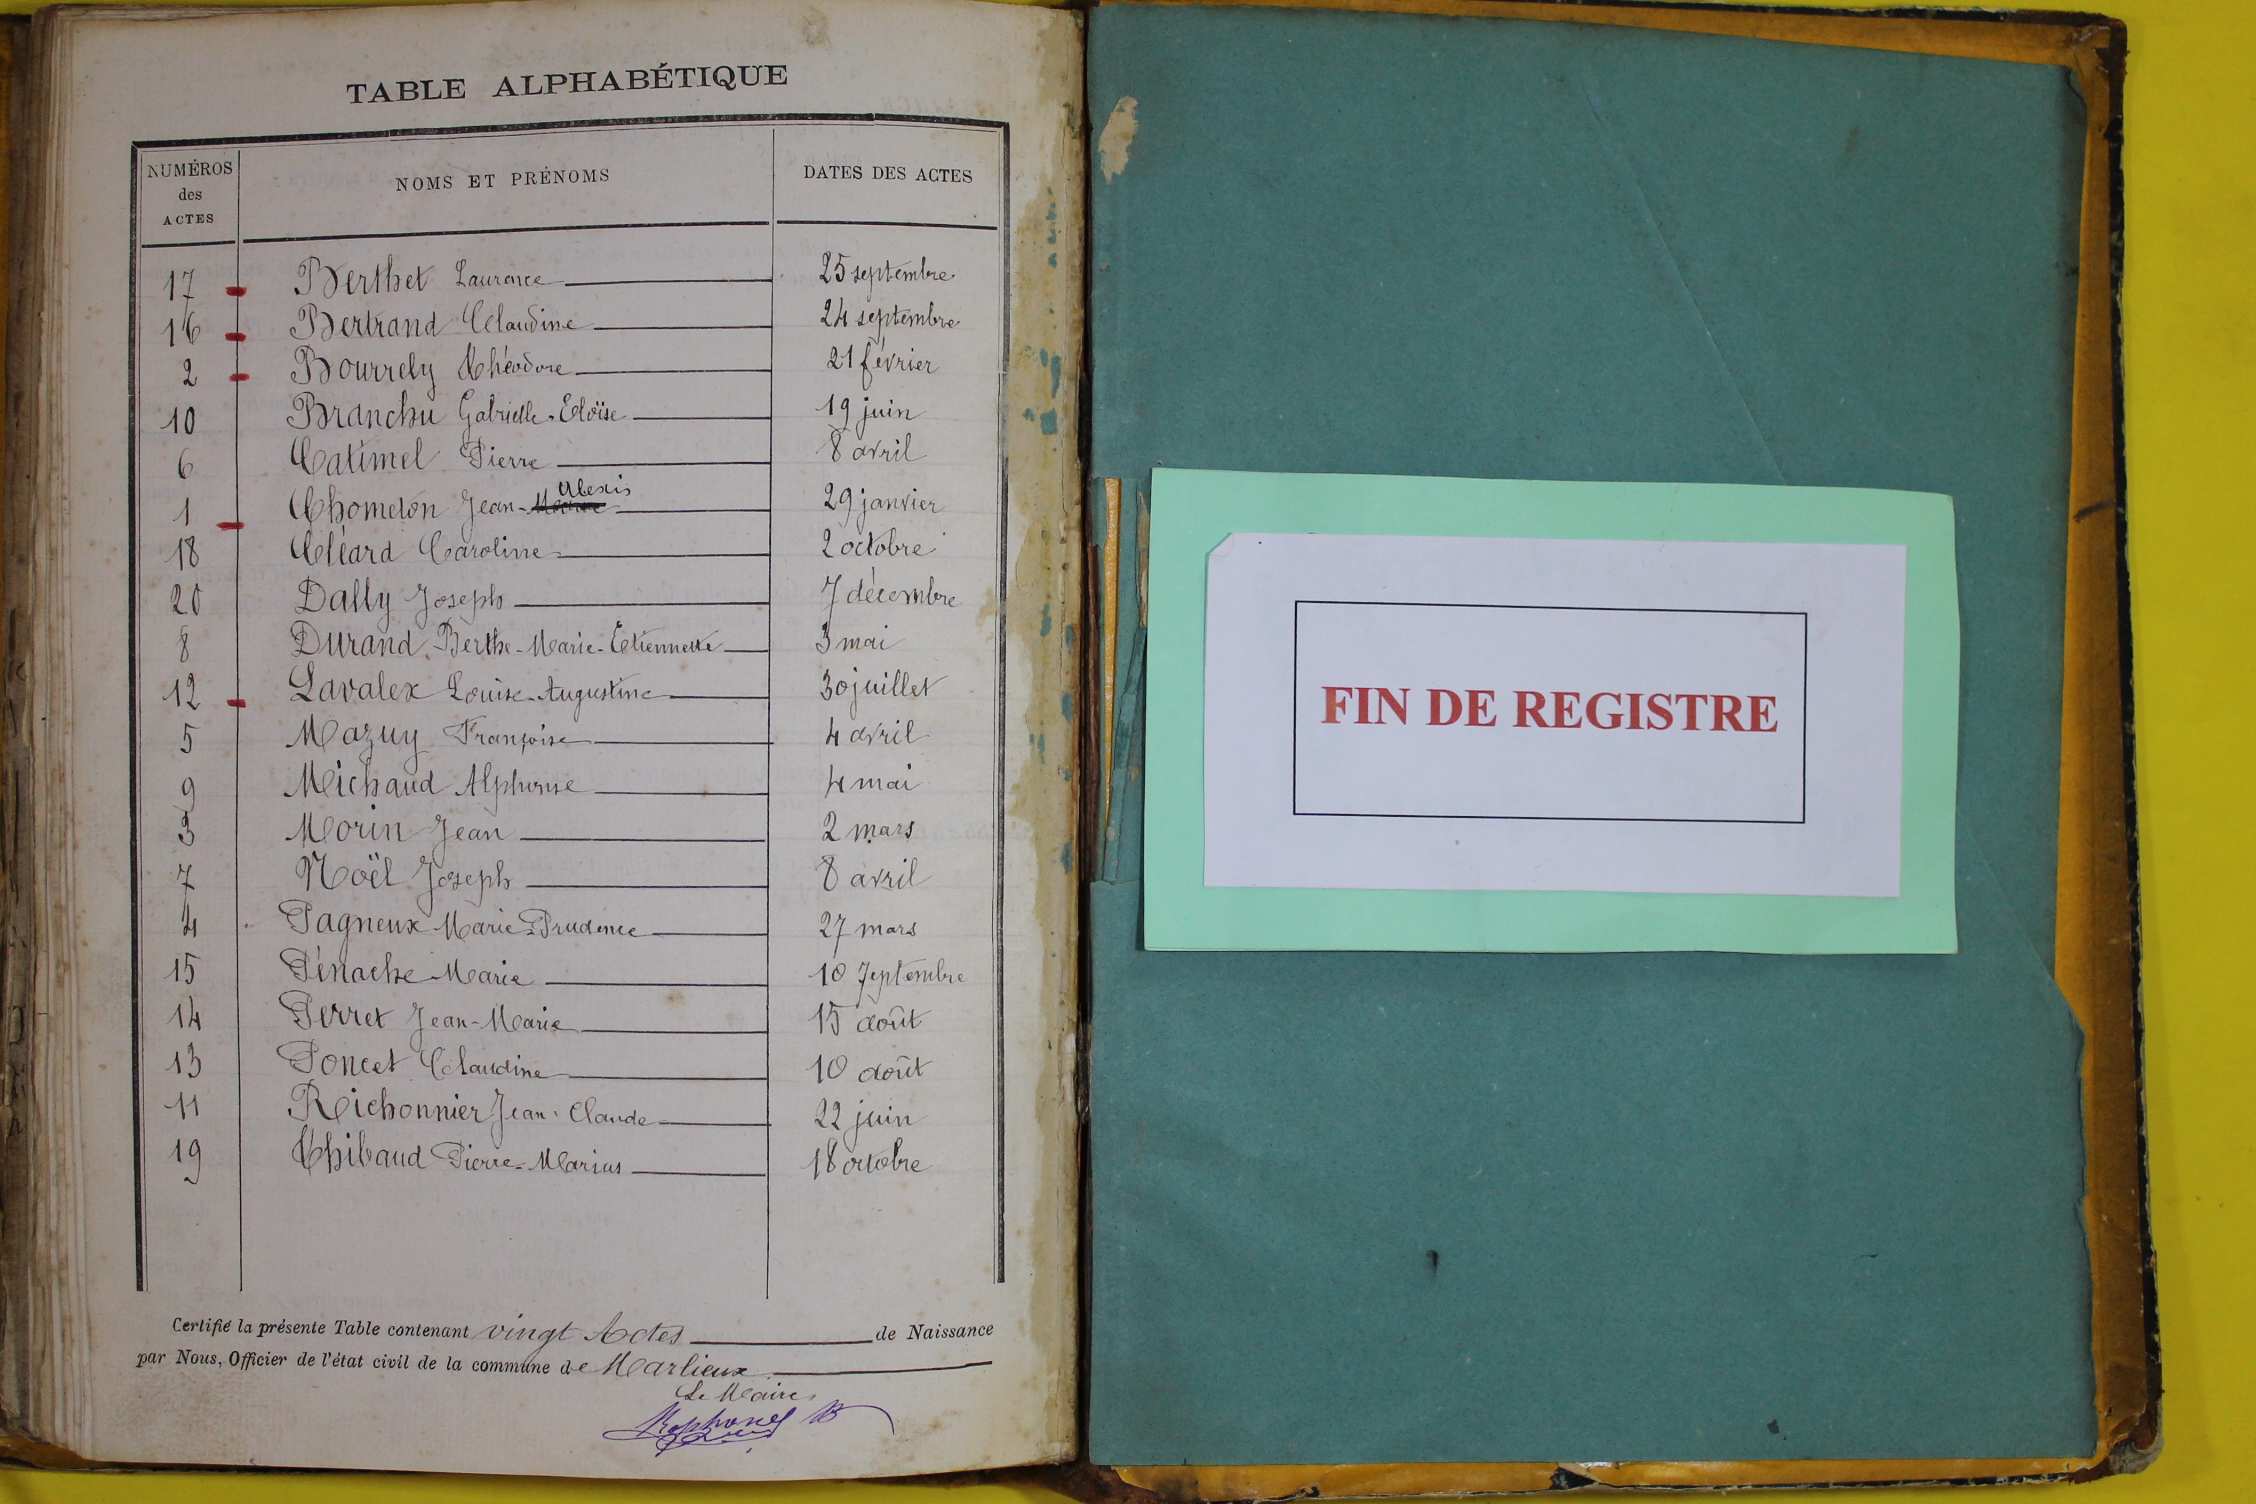 TABLE ALPHABÉTIQUE
NUMÉROS des ACTES NOMS ET PRÉNOMS DATES DES ACTES
17 Berthet Laurence 25 septembre
16 Bertrand Claudine 24 septembre
2 Bourrely Théodore 21 février
10 Branchu Gabrielle-Eloïse 19 juin
6 Catimel Pierre 8 avril
1 Chomelon Jean-Alexis 29 janvier
18 Cléard Caroline 2 octobre
20 Dally Joseph 7 décembre
8 Durand Berthe-Marie-Etiennette 3 mai
12 Lavalex Louise-Augustine 30 juillet
5 Mazuy Françoise 4 avril
9 Michaud Alphonse 4 mai
3 Morin Jean 2 mars
7 Noël Joseph 8 avril
4 Pagneux Marie-Prudence 27 mars
15 Pénache Marie 10 Septembre
14 Perret Jean-Marie 15 août
13 Poncet Claudine 10 août
11 Richonnier Jean-Claude 22 juin
19 Thibaud Pierre-Marius 18 octobre
Certifié la présente Table contenant vingt Actes de Naissance
par Nous, Officier de l'état civil de la commune de Marlieux
Le Maire,
FIN DE REGISTRE